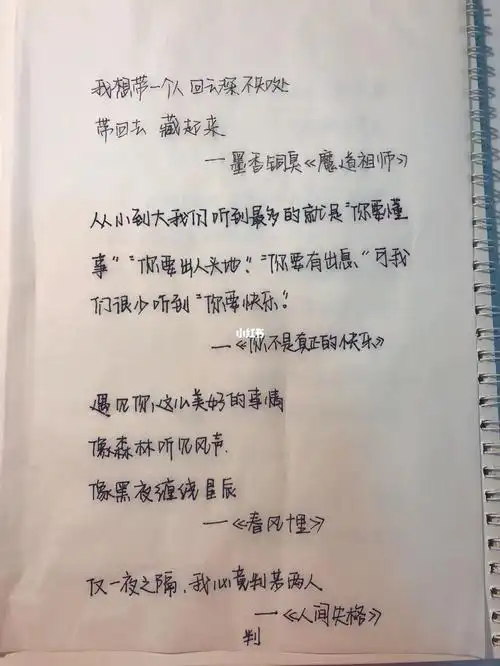 我想带一个人回云深不知处
带回去 藏起来
—墨香铜臭《魔道祖师》
从小到大我们听到最多的就是“你要懂
事”“你要出人头地”“你要有出息”可我
们很少听到“你要快乐”
小红书
—《你不是真正的快乐》
遇见你,这么美好的事情
像森林听见风声
像黑夜缠绕星辰
—《春风十里》
仅一夜之隔,我心竟判若两人
—《人间失格》
判